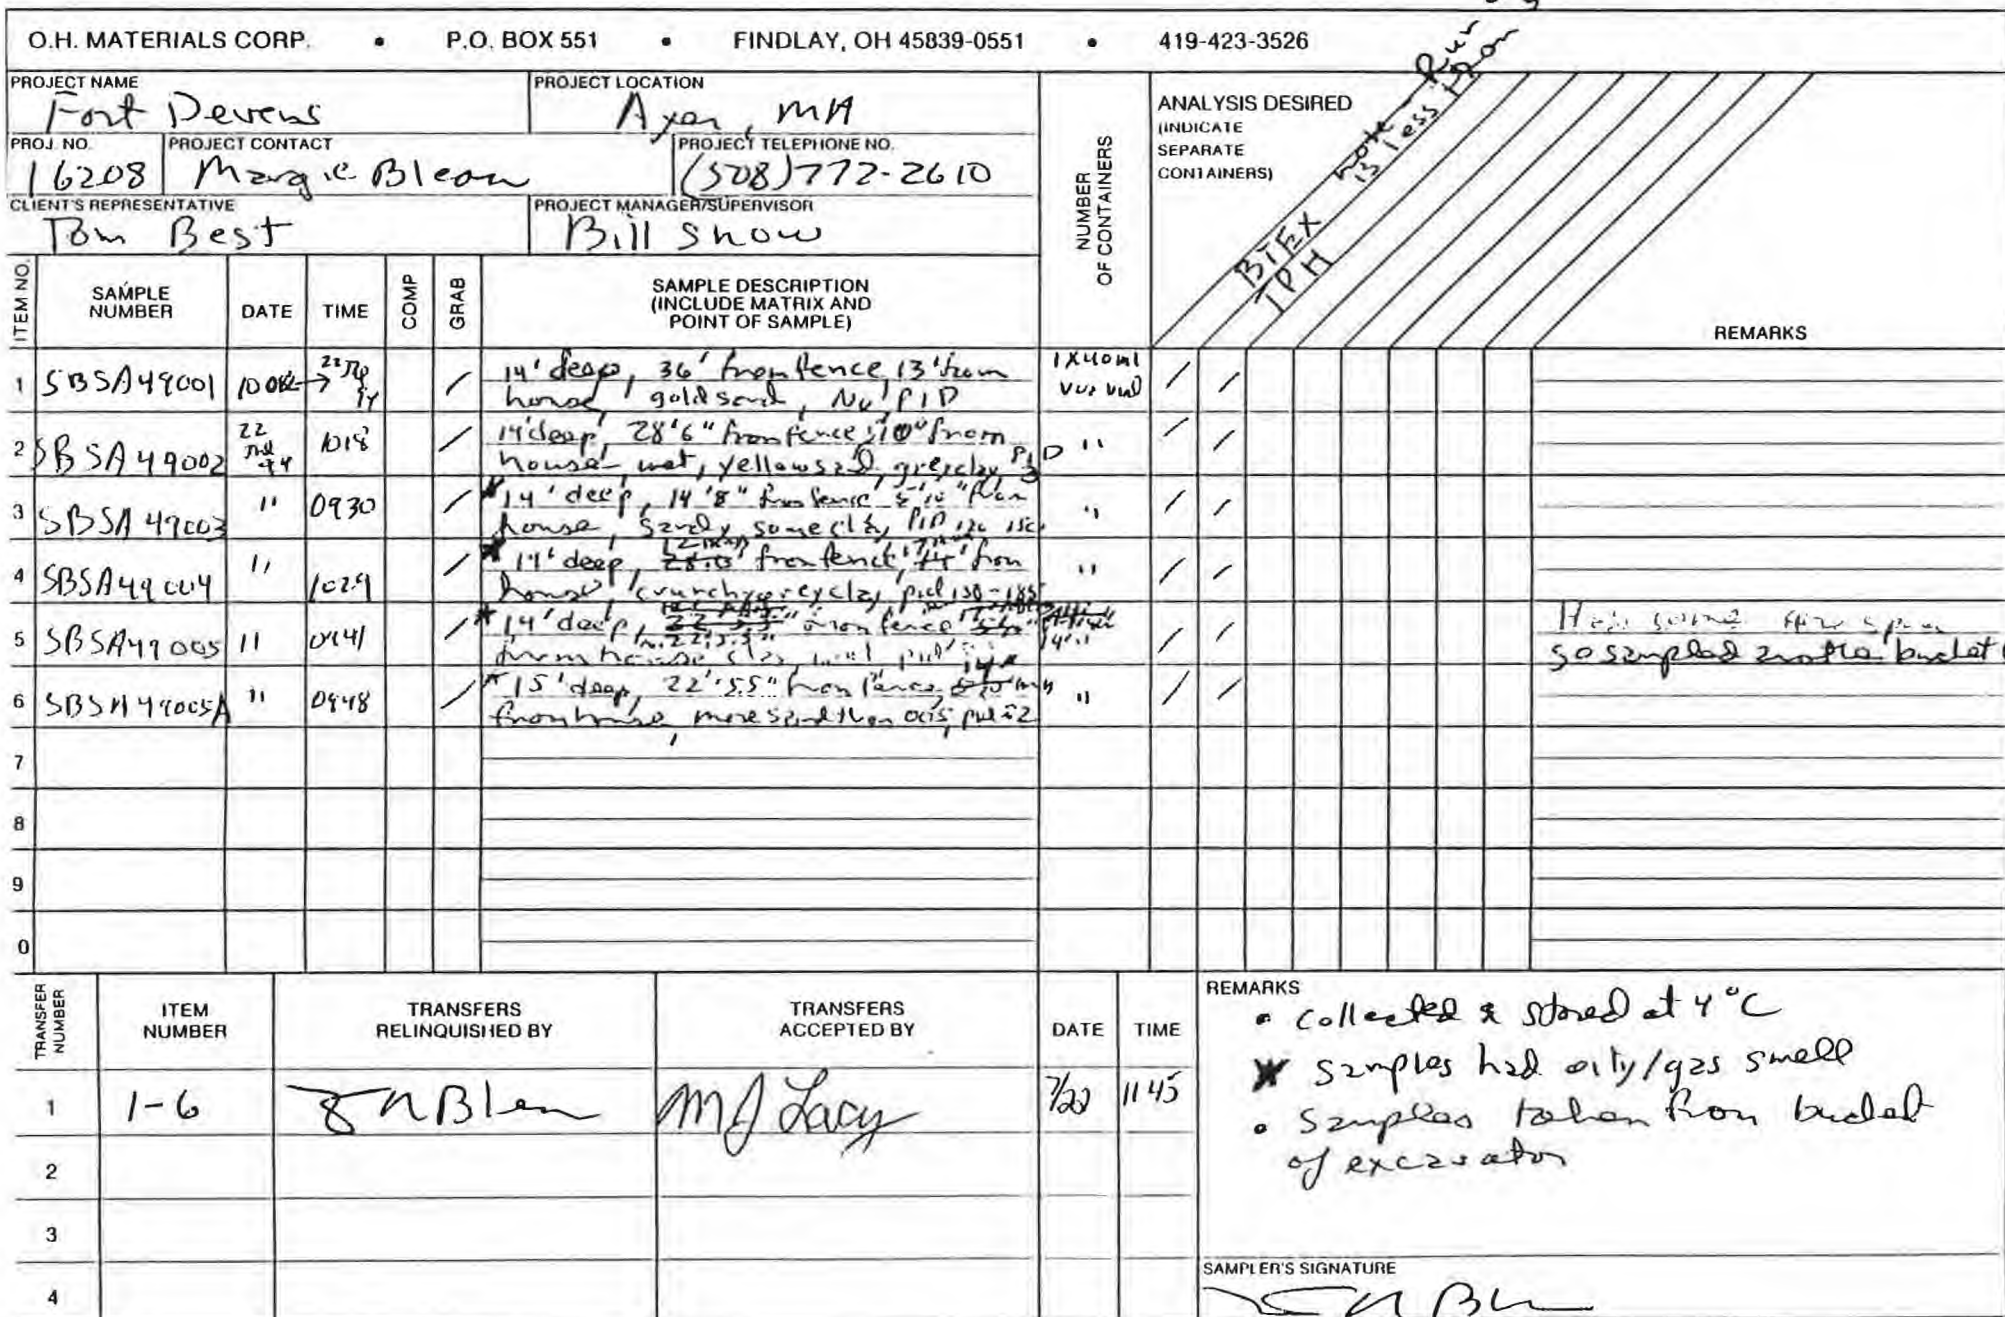 O.H. MATERIALS CORP. • P.O. BOX 551 • FINDLAY, OH 45839-0551 • 419-423-3526
PROJECT NAME
Fort Devens
PROJECT LOCATION
Ayer, MA
PROJ. NO.
16208
PROJECT CONTACT
Margie Bleau
PROJECT TELEPHONE NO.
(508)772-2610
CLIENT'S REPRESENTATIVE
Tom Best
PROJECT MANAGER/SUPERVISOR
Bill Snow
NUMBER
OF CONTAINERS
ANALYSIS DESIRED
(INDICATE
SEPARATE
CONTAINERS)
note - Run
is less than
BTEX
TPH
ITEM NO.
SAMPLE
NUMBER
DATE
TIME
COMP
GRAB
SAMPLE DESCRIPTION
(INCLUDE MATRIX AND
POINT OF SAMPLE)
REMARKS
1 SBSA49001 / 14' deep, 36' from fence 13' from 1x40ml / /
house, gold sand, No PID
2 SBSA49002 22 1018 / 14' deep, 28'6" from fence from " / /
house wet, yellow sand, grey clay PID 3
3 SBSA49003 " 0930 / * 14' deep, 14'8" from fence 5'10" from " / /
house, sandy some clay, PID 120
4 SBSA49004 " 1029 / * 14' deep, from fence from " / /
house, crunchy grey clay pid 150-185
5 SBSA49005 " 0941 / * 14' deep, from fence / /
from house, clay, pid
Has some
so sampled another bucket
6 SBSA49005A " 0948 / * 15' deep, 22'5.5" from fence, " / /
from house, more sand than 005, pid
7
8
9
0
TRANSFER
NUMBER
ITEM
NUMBER
TRANSFERS
RELINQUISHED BY
TRANSFERS
ACCEPTED BY
DATE
TIME
1 1-6 Blean MJ Lacy 7/22 1145
2
3
4
REMARKS
• collected & stored at 4°C
* samples had oily/gas smell
• samples taken from bucket
of excavator
SAMPLER'S SIGNATURE